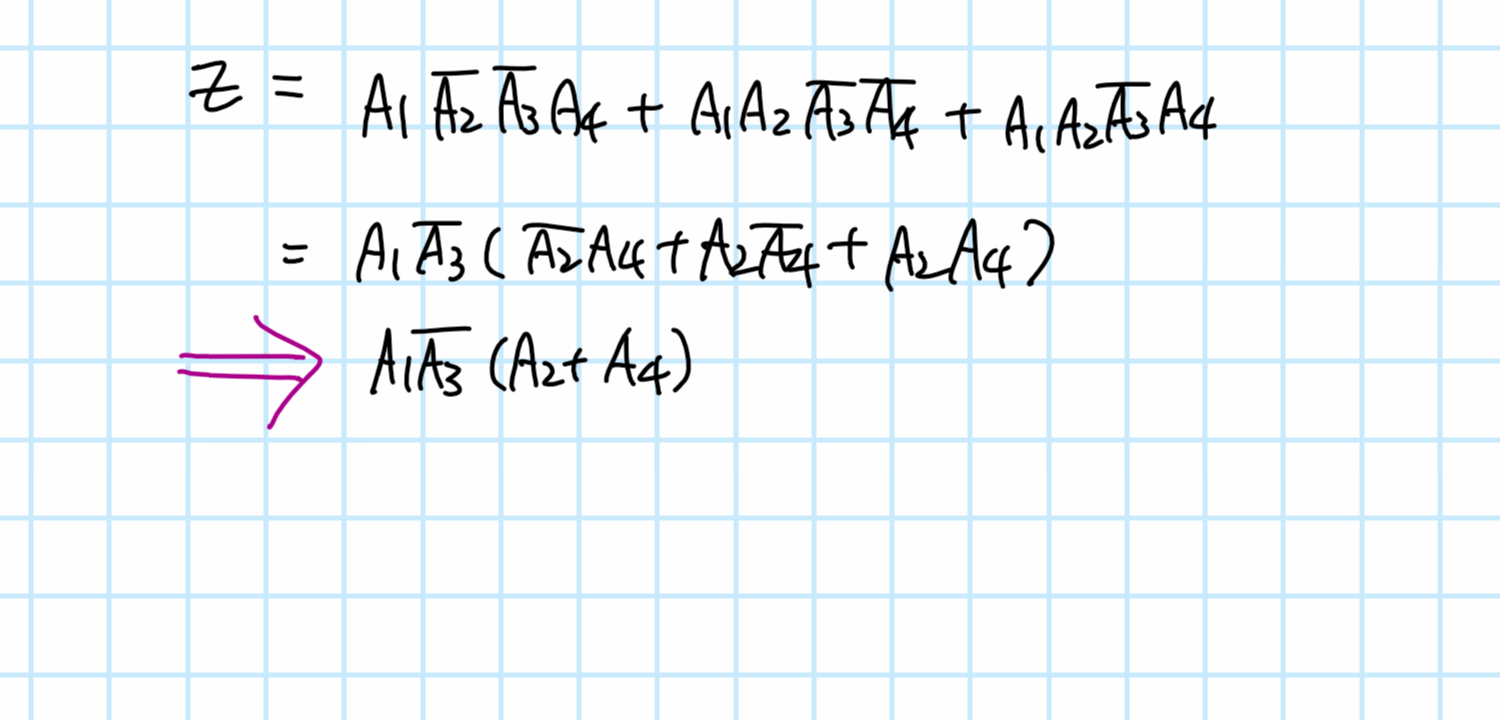 Z = A₁ A̅₂ A̅₃ A₄ + A₁ A₂ A̅₃ A̅₄ + A₁ A₂ A̅₃ A₄
= A₁ A̅₃ ( A̅₂ A₄ + A₂ A̅₄ + A₂ A₄ )
⇒ A₁ A̅₃ ( A₂ + A₄ )